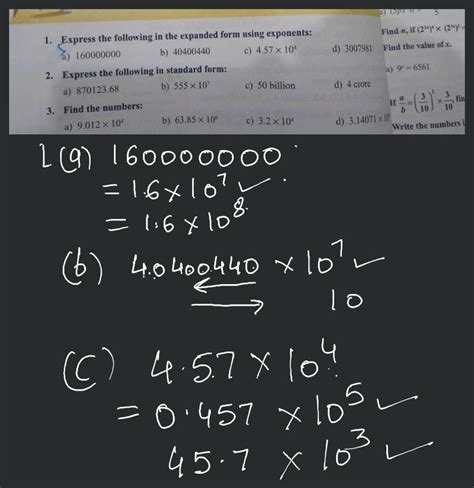 1. Express the following in the expanded form using exponents:
a) 160000000 b) 40400440 c) 4.57 × 10⁴ d) 3007981
2. Express the following in standard form:
a) 870123.68 b) 555 × 10⁷ c) 50 billion d) 4 crore
3. Find the numbers:
a) 9.012 × 10⁴ b) 63.85 × 10⁶ c) 3.2 × 10⁴ d) 3.14071 ×
Find n, if
Find the value of x.
a) 9ˣ = 6561
If a/b = (3/10)² × 3/10, fin
Write the numbers i
1(a) 160000000
= 16 × 10⁷
= 1.6 × 10⁸
(b) 4.0400440 × 10⁷
10
(c) 4.57 × 10⁴
= 0.457 × 10⁵
45.7 × 10³